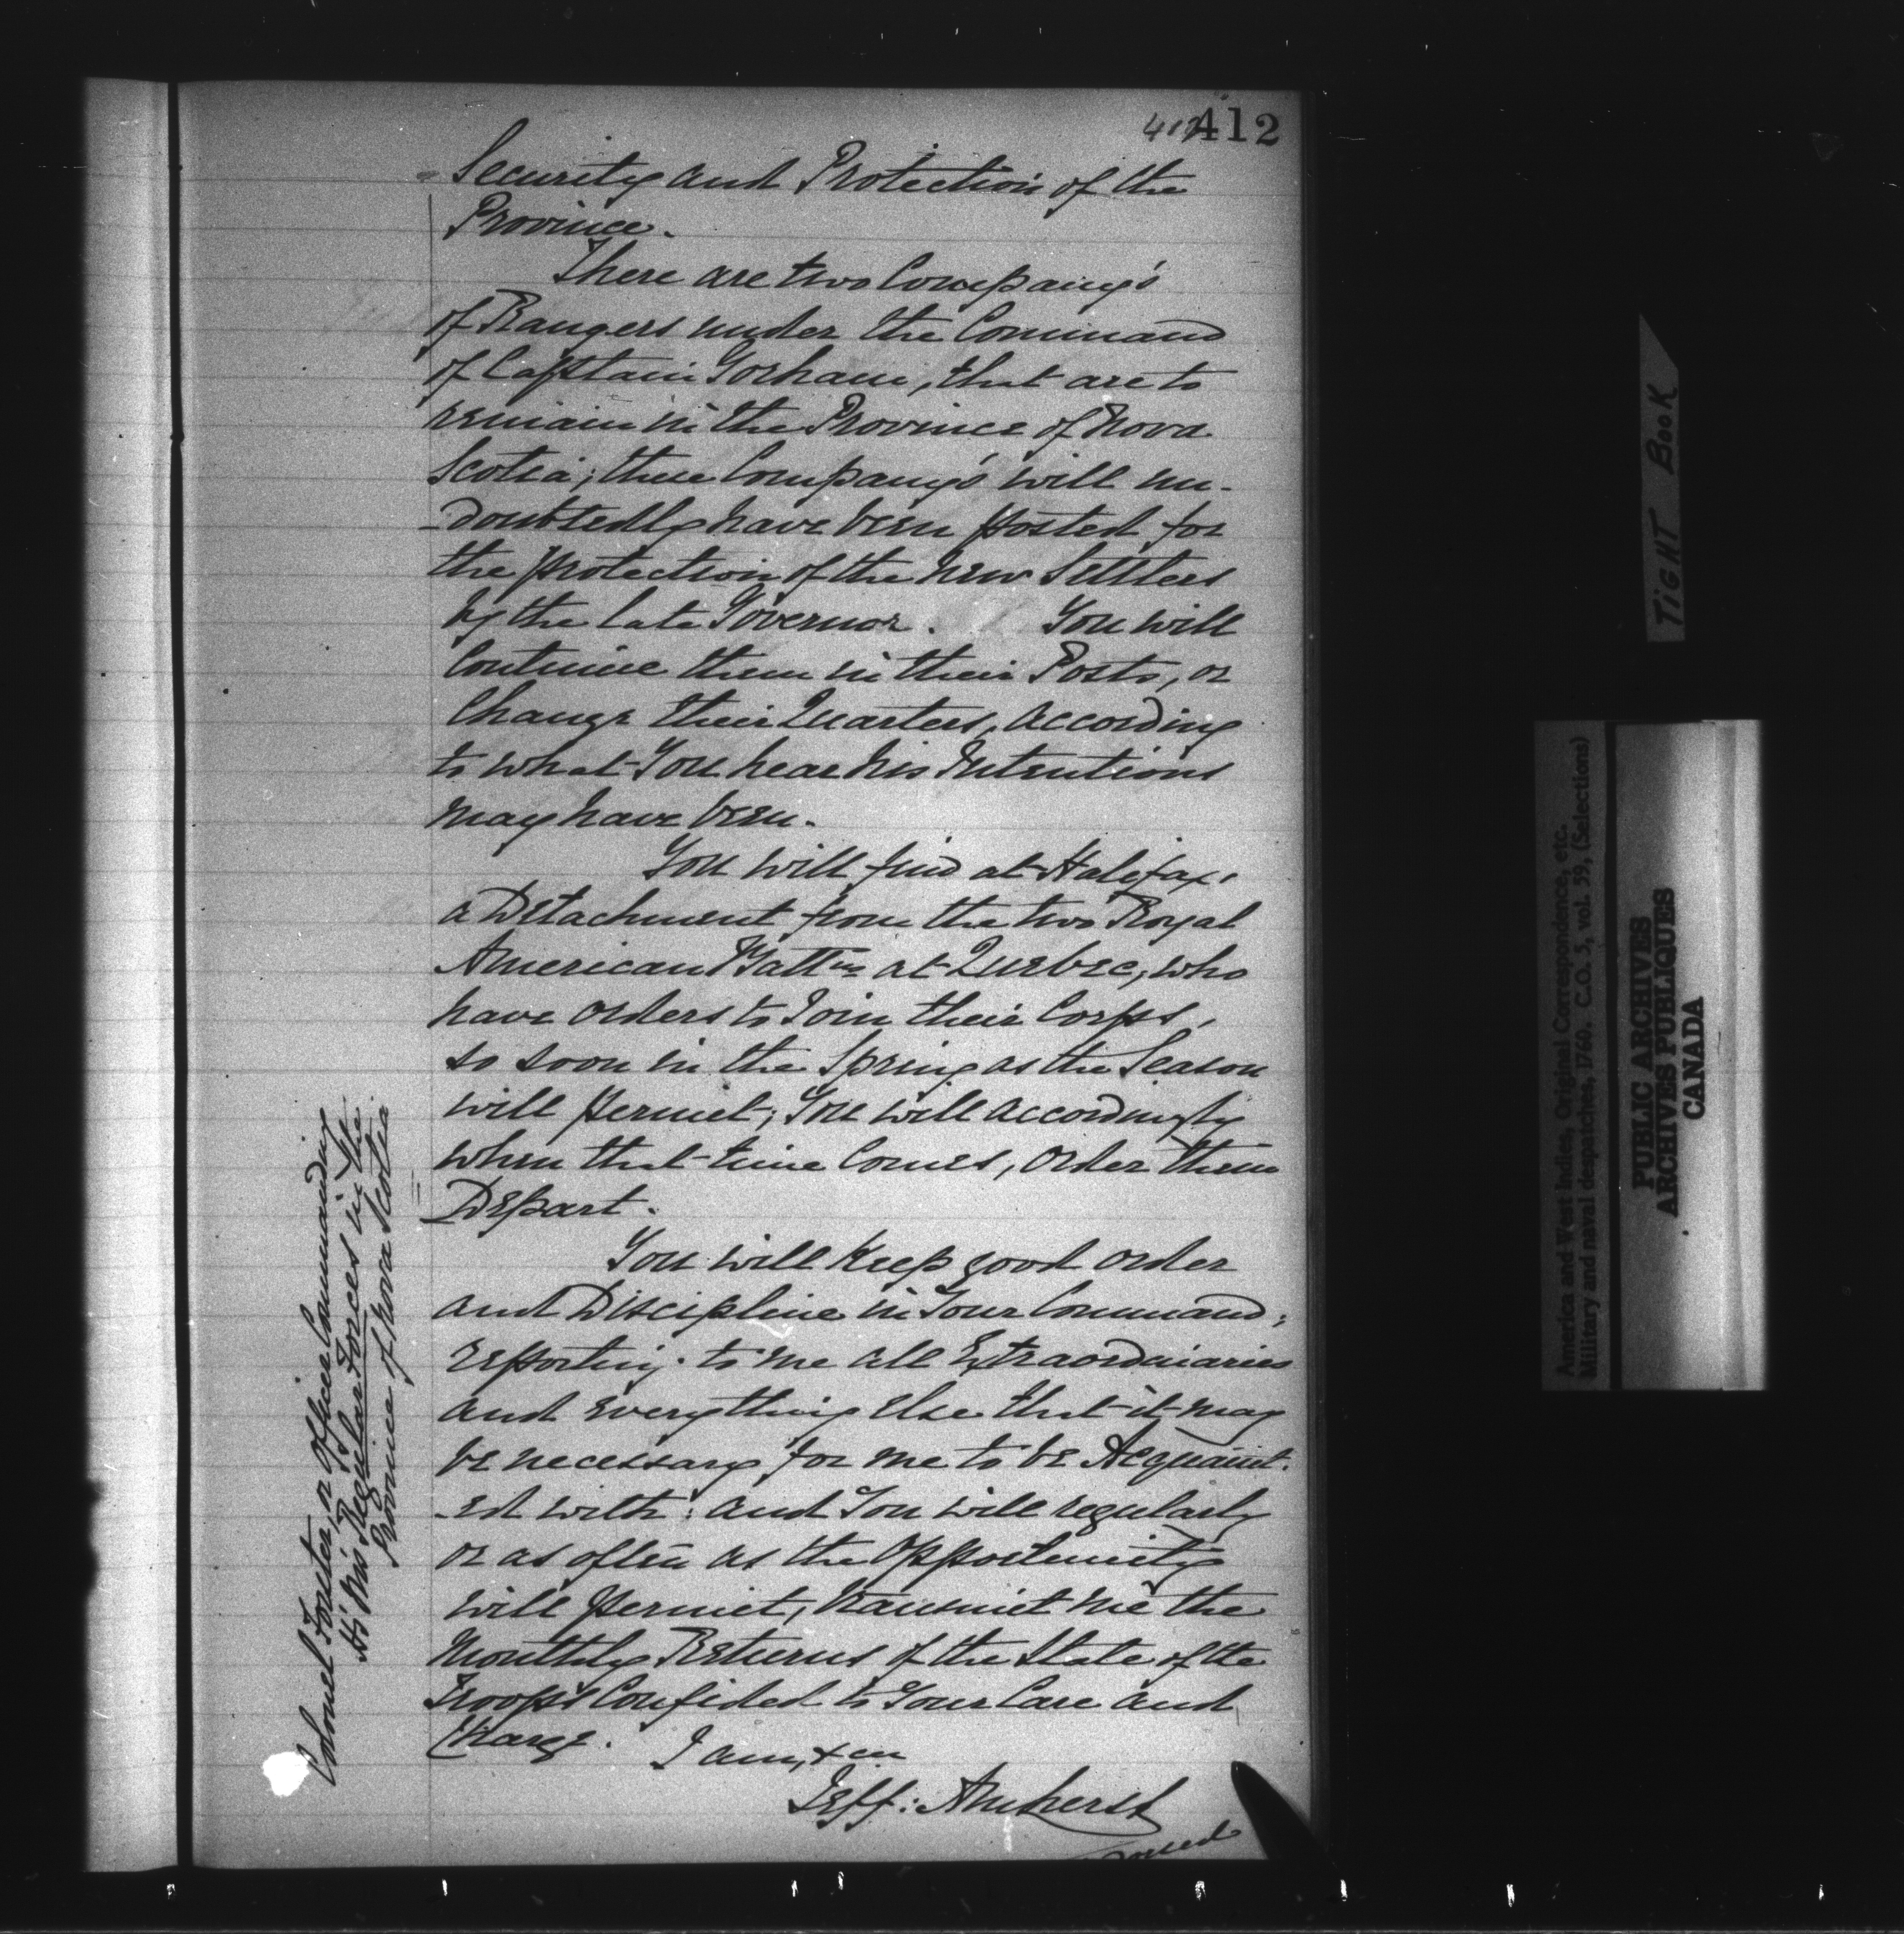 412 412
Security and Protection of the
Province.
There are two Company's
of Rangers under the Command
of Captain Gorham, that are to
remain in the Province of Nova
Scotia; these Company's will un-
-doubtedly have been posted for
the protection of the new Settlers
by the late Governor. You will
Continue them in their Posts, or
Change their Quarters, according
to what You hear his Intentions
may have been.
You will find at Halifax,
a Detachment from the two Royal
American Battns at Quebec, who
have orders to Join their Corps,
so soon in the Spring as the Season
will permit; You will accordingly
when that time Comes, order them
Depart.
You will Keep good order
and Discipline in Your Command;
reporting to me all Extraordinaries
and everything else that it may
be necessary for me to be Acquaint-
-ed with: and You will regularly
or as often as the Opportunity
will permit, transmit me the
Monthly Returns of the State of the
Troops Confided to Your Care and
Charge.
I am, &ca
Jeff: Amherst
Colonel Forster, or Officer Commanding
His Mas Regular Forces in the
Province of Nova Scotia
TIGHT BOOK
America and West Indies, Original Correspondence, etc.
Military and naval despatches, 1760. C.O. 5, vol. 59, (Selections)
PUBLIC ARCHIVES
ARCHIVES PUBLIQUES
CANADA